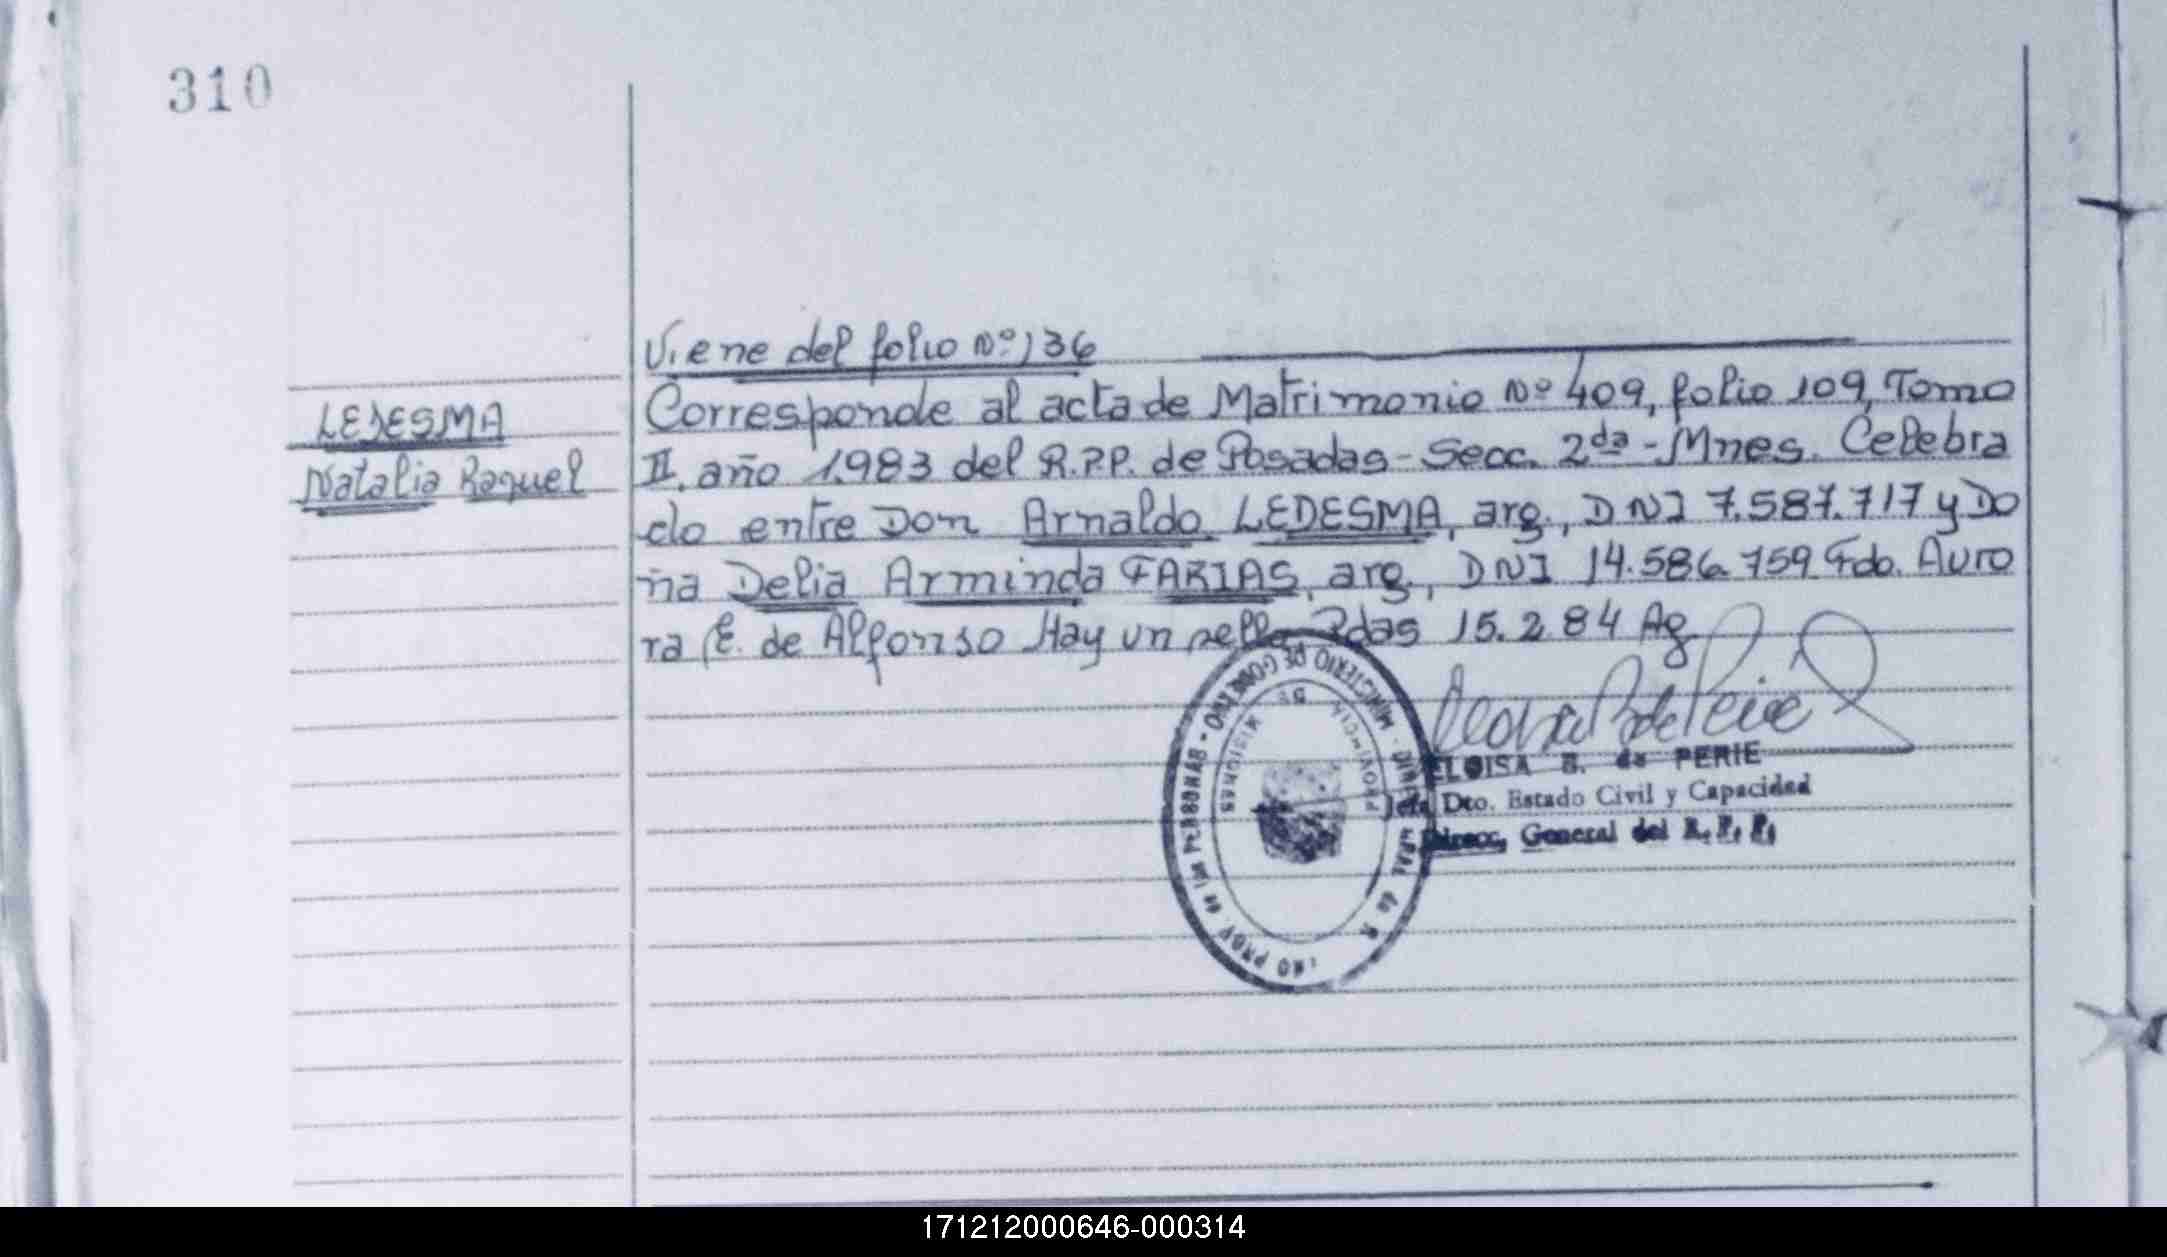 310
Viene del folio Nº 136
LEDESMA
Natalia Raquel
Corresponde al acta de Matrimonio Nº 409, folio 109, Tomo
II, año 1.983 del R.P.P. de Posadas - Secc. 2da - Mnes. Celebra
do entre Don Arnaldo LEDESMA, arg., DNI 7.587.717 y Do
ña Delia Arminda FARIAS, arg., DNI 14.586.759 Fdo. Auro
ra E. de Alfonso Hay un sello Pdas 15.2.84 Ag
MINISTERIO DE GOBIERNO
PROV. de las PERSONAS
PROVINCIA DE MISIONES
ELOISA B. de PERIE
Jefa Dto. Estado Civil y Capacidad
Direcc. General del R. P. P.
171212000646-000314